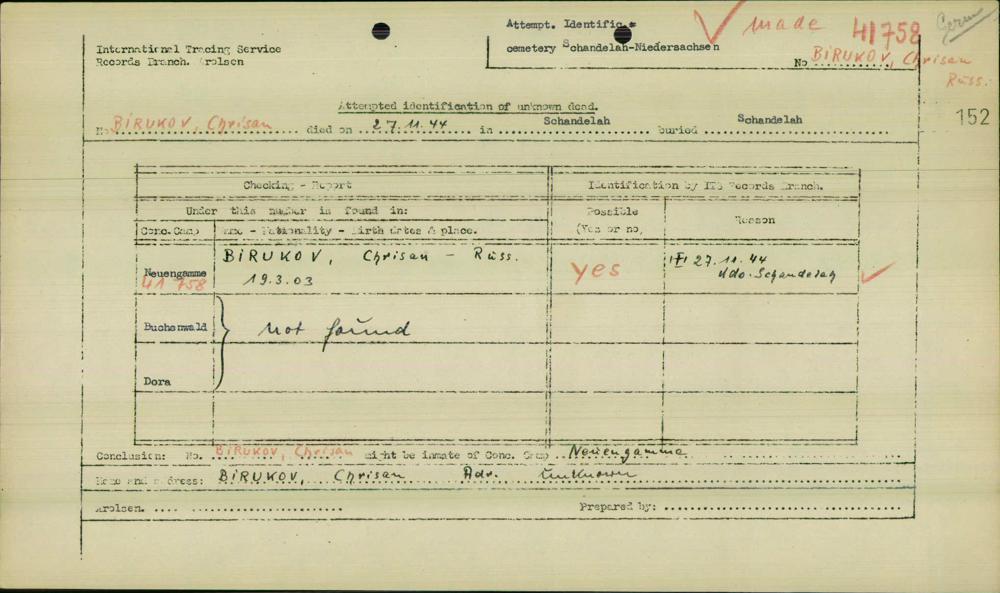 Attempt. Identific.
cemetery Schandelah-Niedersachsen
made 41758
Germ
International Tracing Service
Records Branch. Arolsen
No BIRUKOV, Chrisan
Russ.
152
Attempted identification of unknown dead.
No. BIRUKOV, Chrisan died on 27.11.44 in Schandelah buried Schandelah
Checking - Report
Identification by ITS Records Branch.
Under this number is found in:
Possible
(Yes or no)
Reason
Conc. Camp
Name - Nationality - Birth dates & place.
Neuengamme
41 758
BIRUKOV, Chrisan - Russ.
19.3.03
yes
27.11.44
Kdo. Schandelah
Buchenwald
not found
Dora
Conclusion: No. BIRUKOV, Chrisan might be inmate of Conc. Camp Neuengamme
Name and address: BIRUKOV, Chrisan Adr. unknown
Arolsen.
Prepared by: